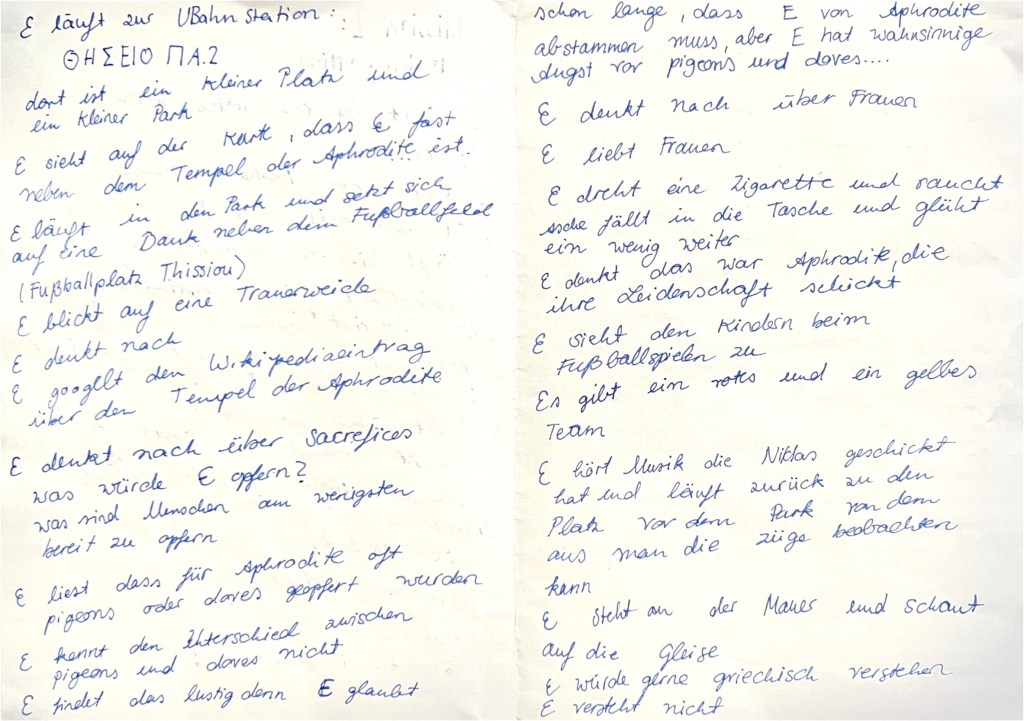 E läuft zur UBahn Station:
ΘΗΣΕΙΟ ΠΑ.2
dort ist ein kleiner Platz und
ein kleiner Park
E sieht auf der Karte, dass E fast
neben dem Tempel der Aphrodite ist.
E läuft in den Park und setzt sich
auf eine Bank neben dem Fußballfeld
(Fußballplatz Thission)
E blickt auf eine Trauerweide
E denkt nach
E googelt den Wikipediaeintrag
über den Tempel der Aphrodite
E denkt nach über Sacrefices
was würde E opfern?
was sind Menschen am wenigsten
bereit zu opfern
E liest dass für Aphrodite oft
pigeons oder doves geopfert wurden
E kennt den Unterschied zwischen
pigeons und doves nicht
E findet das lustig denn E glaubt
schon lange, dass E von Aphrodite
abstammen muss, aber E hat wahnsinnige
Angst vor pigeons und doves....
E denkt nach über Frauen
E liebt Frauen
E dreht eine Zigarette und raucht
Asche fällt in die Tasche und glüht
ein wenig weiter
E denkt das war Aphrodite, die
ihre Leidenschaft schickt
E sieht den Kindern beim
Fußballspielen zu
Es gibt ein rotes und ein gelbes
Team
E hört Musik die Niklas geschickt
hat und läuft zurück zu dem
Platz vor dem Park von dem
aus man die Züge beobachten
kann
E steht an der Mauer und schaut
auf die Gleise
E würde gerne griechisch verstehen
E versteht nicht